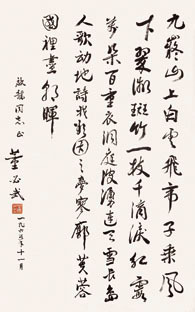 九嶷山上白云飛帝子乘風
下翠微斑竹一枝千滴淚紅霞
萬朵百重衣洞庭波湧連天雪長島
人歌動地詩我欲因之夢寥廓芙蓉
國裡盡朝暉
同志正
董必武
一九六五年十一月